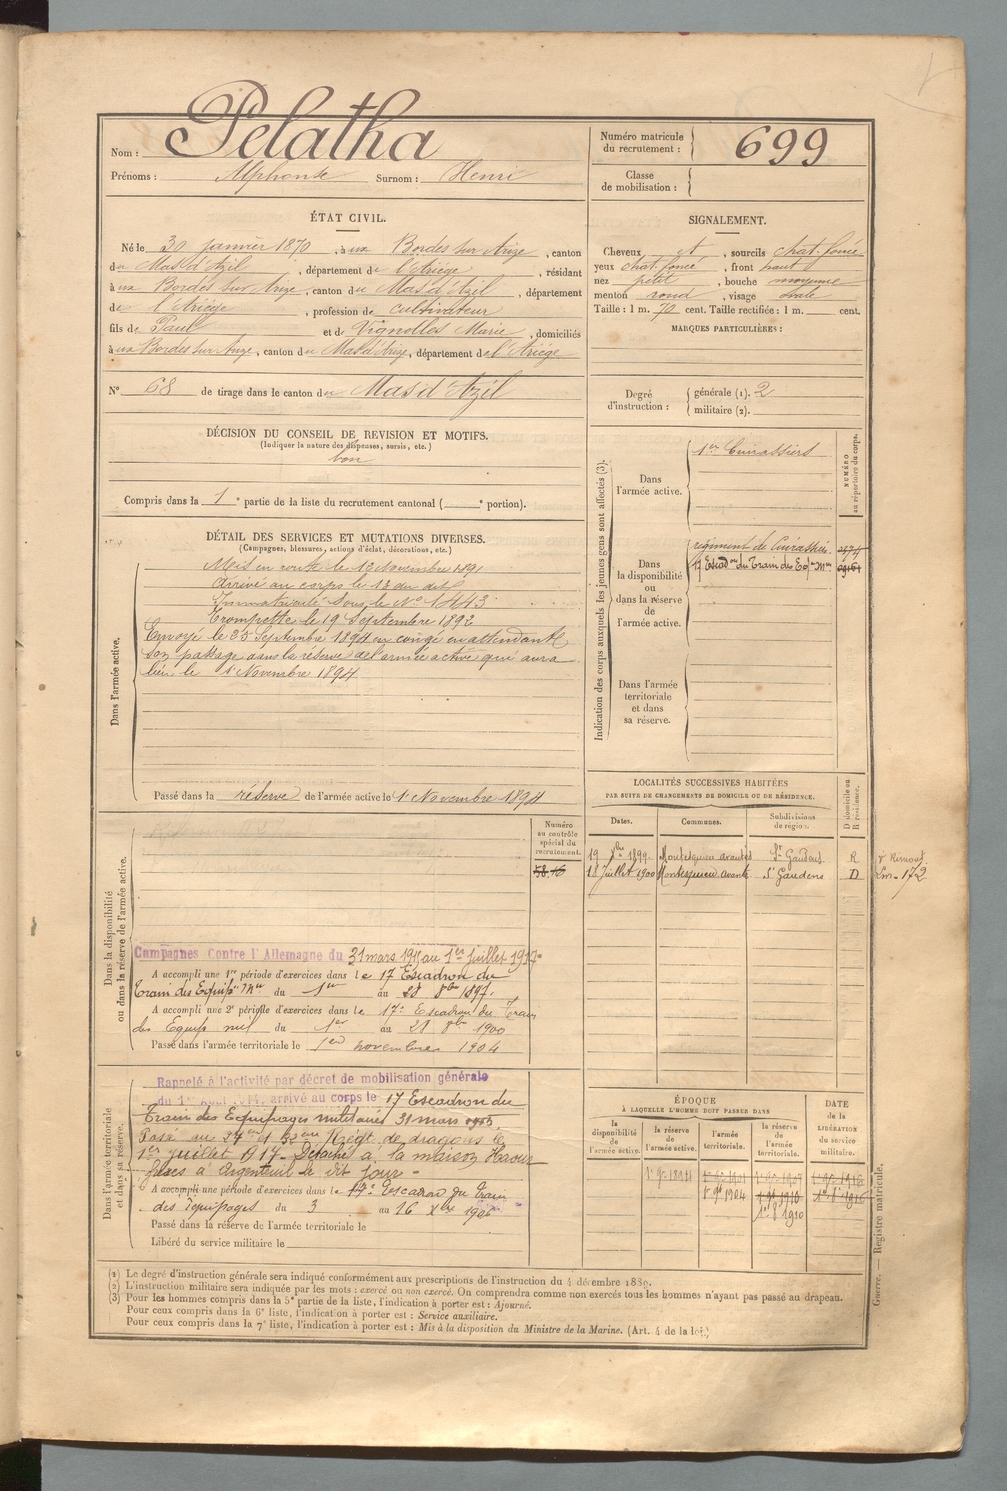 Nom : Pelatha
Prénoms : Alphonse Surnom : Henri
Numéro matricule du recrutement : 699
Classe de mobilisation :
ÉTAT CIVIL.
Né le 30 janvier 1870, à ux Bordes sur Arize, canton
du Mas d'Azil, département de l'Ariège, résidant
à ux Bordes sur Arize, canton du Mas d'Azil, département
de l'Ariège, profession de cultivateur
fils de Paul et de Vignolles Marie, domiciliés
à ux Bordes sur Arize, canton du Mas d'Arize, département de l'Ariège
N° 68 de tirage dans le canton du Mas d'Azil
SIGNALEMENT.
Cheveux et, sourcils chat. foncé
yeux chat. foncé, front haut
nez petit, bouche moyenne
menton rond, visage ovale
Taille : 1 m. 70 cent. Taille rectifiée : 1 m. cent.
MARQUES PARTICULIÈRES :
Degré d'instruction : générale (1). 2
militaire (2).
DÉCISION DU CONSEIL DE REVISION ET MOTIFS.
(Indiquer la nature des dispenses, sursis, etc.)
bon
Compris dans la 1e partie de la liste du recrutement cantonal ( e portion).
DÉTAIL DES SERVICES ET MUTATIONS DIVERSES.
(Campagnes, blessures, actions d'éclat, décorations, etc.)
Dans l'armée active.
Mis en route le 12 Novembre 1891
Arrivé au corps le 13 du dit
Immatriculé sous le N°
Trompette le 19 Septembre 1892
Envoyé le 25 Septembre 1894 en congé en attendant
son passage dans la réserve de l'armée active qui aura
lieu le 1er Novembre 1894
Passé dans la réserve de l'armée active le 1er Novembre 1894
Indication des corps auxquels les jeunes gens sont affectés (3).
NUMÉRO au répertoire du corps.
Dans l'armée active.
1er Cuirassiers
Dans la disponibilité ou dans la réserve de l'armée active.
régiment de Cuirassiers
17 Escad on du Train des Eq. Mres
Dans l'armée territoriale et dans sa réserve.
LOCALITÉS SUCCESSIVES HABITÉES
PAR SUITE DE CHANGEMENTS DE DOMICILE OU DE RÉSIDENCE.
D domicile ou R résidence.
Dates. Communes. Subdivisions de région.
19 Xbre 1899 Montesquieu avantès St Gaudens R
18 Juillet 1900 Montesquieu avantès St Gaudens D
Dans la disponibilité ou dans la réserve de l'armée active.
Numéro au contrôle spécial du recrutement.
Campagnes Contre l'Allemagne du 31 mars 191 au 1er juillet 1917
A accompli une 1re période d'exercices dans le 17 Escadron du
Train des Equip. Mres du 1er au 28 8bre 1897.
A accompli une 2e période d'exercices dans le 17e Escadron du Train
des Equip. mil du 1er au 28 8bre 1900
Passé dans l'armée territoriale le 1er novembre 1904
Dans l'armée territoriale et dans sa réserve.
Rappelé à l'activité par décret de mobilisation générale
du 1er Août 1914, arrivé au corps le 17 Escadron du
Train des Equipages militaires 31 mars
Passé au Régt de dragons le
1er juillet 1917 - Détaché à la maison
à Argenteuil le dit jour -
A accompli une période d'exercices dans le 17e Escadron du Train
des Equipages du 3 au 16 Xbre
Passé dans la réserve de l'armée territoriale le
Libéré du service militaire le
ÉPOQUE
À LAQUELLE L'HOMME DOIT PASSER DANS
la disponibilité de l'armée active. la réserve de l'armée active. l'armée territoriale. la réserve de l'armée territoriale.
DATE de la LIBÉRATION du service militaire.
Guerre. — Registre matricule.
(1) Le degré d'instruction générale sera indiqué conformément aux prescriptions de l'instruction du 4 décembre 1889.
(2) L'instruction militaire sera indiquée par les mots : exercé ou non exercé. On comprendra comme non exercés tous les hommes n'ayant pas passé au drapeau.
(3) Pour les hommes compris dans la 5e partie de la liste, l'indication à porter est : Ajourné.
Pour ceux compris dans la 6e liste, l'indication à porter est : Service auxiliaire.
Pour ceux compris dans la 7e liste, l'indication à porter est : Mis à la disposition du Ministre de la Marine. (Art. 4 de la loi.)